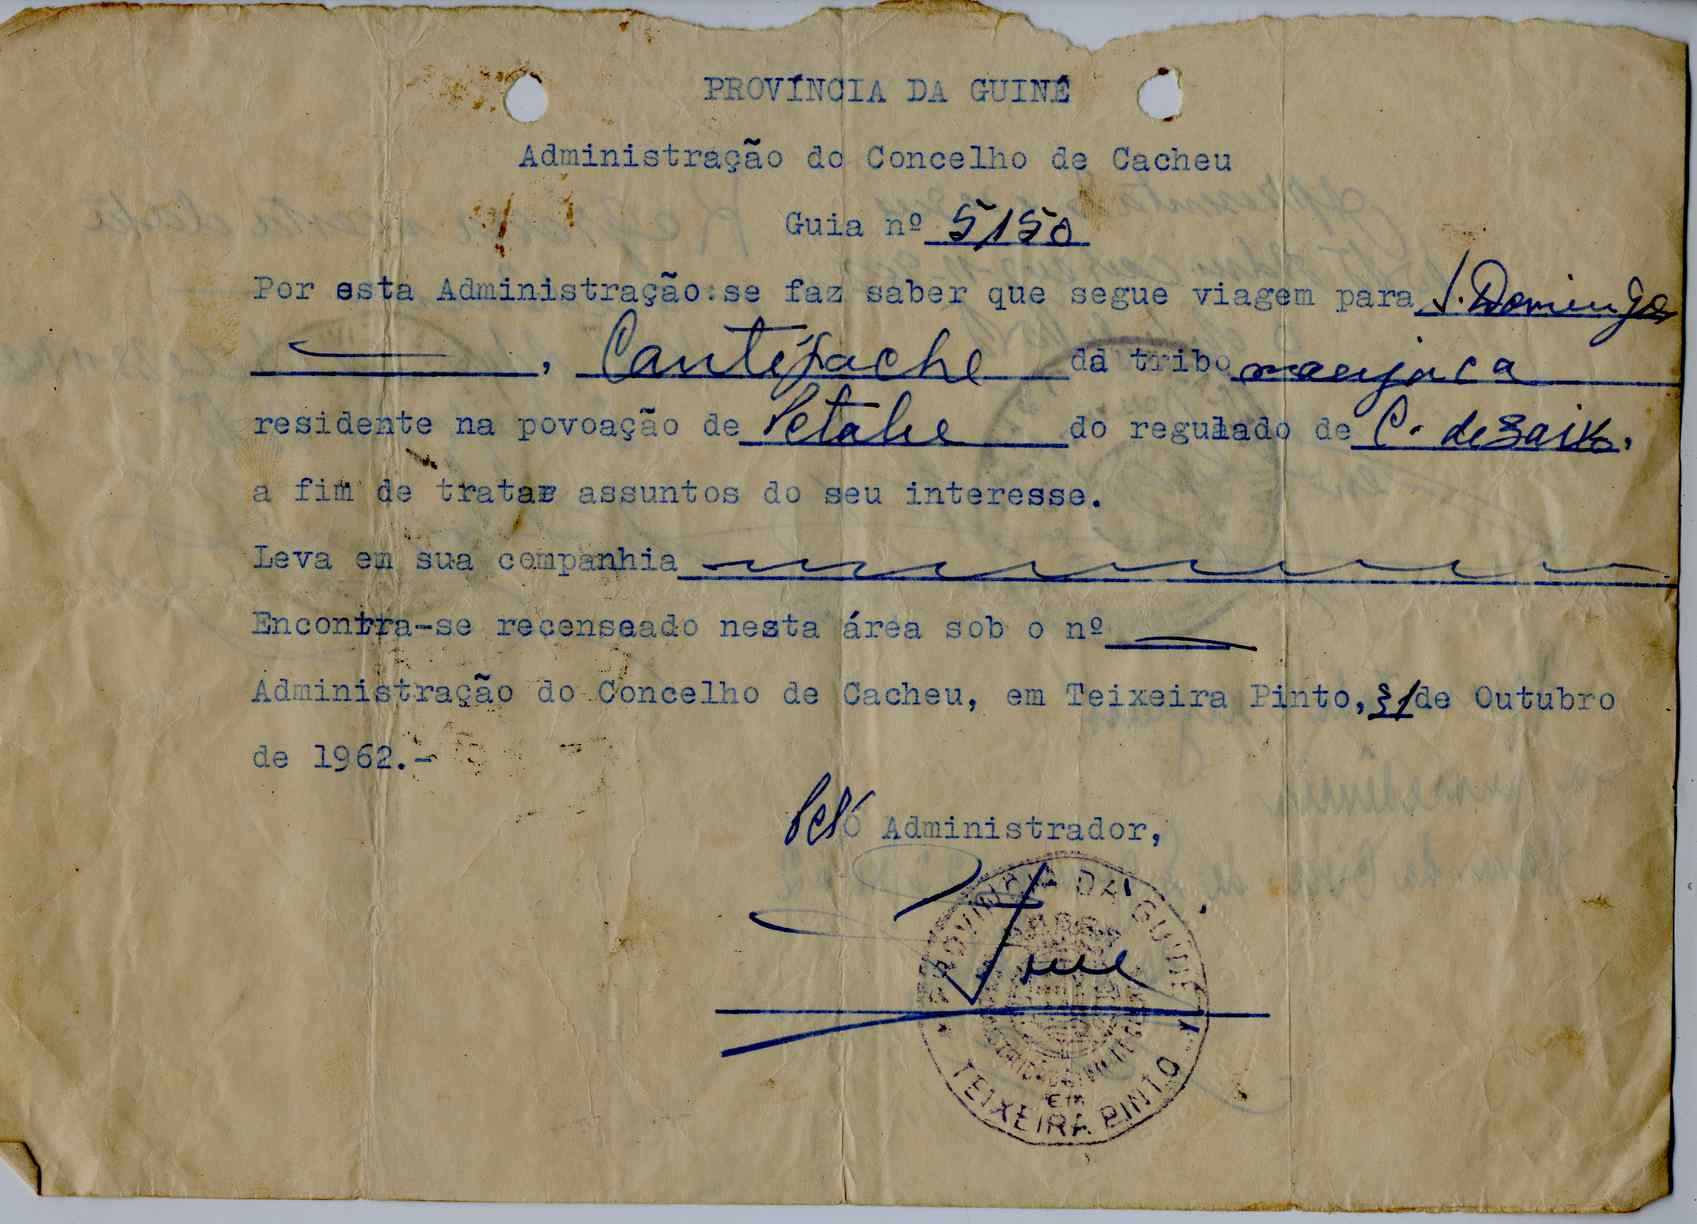 PROVÍNCIA DA GUINÉ
Administração do Concelho de Cacheu
Guia nº 5150
Por esta Administração se faz saber que segue viagem para S. Domingos
, Cantípache da tribo manjaca
residente na povoação de Petabe do regulado de C. de Baixo,
a fim de tratar assuntos do seu interesse.
Leva em sua companhia
Encontra-se recenseado nesta área sob o nº
Administração do Concelho de Cacheu, em Teixeira Pinto, 31 de Outubro
de 1962.-
Pelo Administrador,
PROVÍNCIA DA GUINÉ
EM
TEIXEIRA PINTO